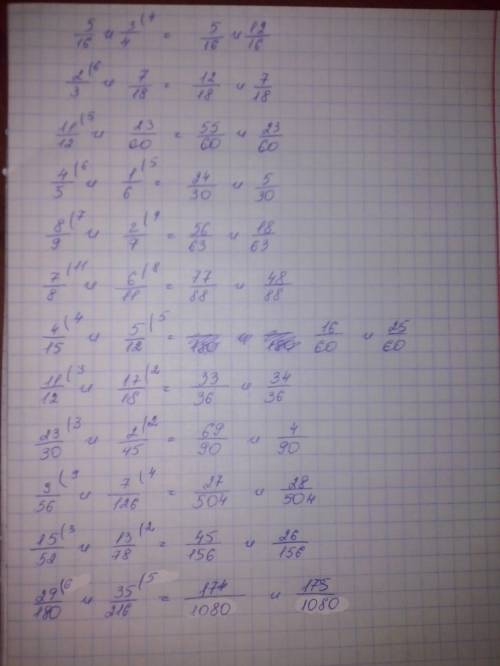 5/16 и 3/4 (4 = 5/16 и 12/16
2/3 (6 и 7/18 = 12/18 и 7/18
11/12 (5 и 23/60 = 55/60 и 23/60
4/5 (6 и 1/6 (5 = 24/30 и 5/30
8/9 (7 и 2/7 (9 = 56/63 и 18/63
7/8 (11 и 6/11 (8 = 77/88 и 48/88
4/15 (4 и 5/12 (5 = 16/60 и 25/60
11/12 (3 и 17/18 (2 = 33/36 и 34/36
23/30 (3 и 2/45 (2 = 69/90 и 4/90
3/56 (9 и 7/126 (4 = 27/504 и 28/504
15/52 (3 и 13/78 (2 = 45/156 и 26/156
29/180 (6 и 35/216 (5 = 174/1080 и 175/1080